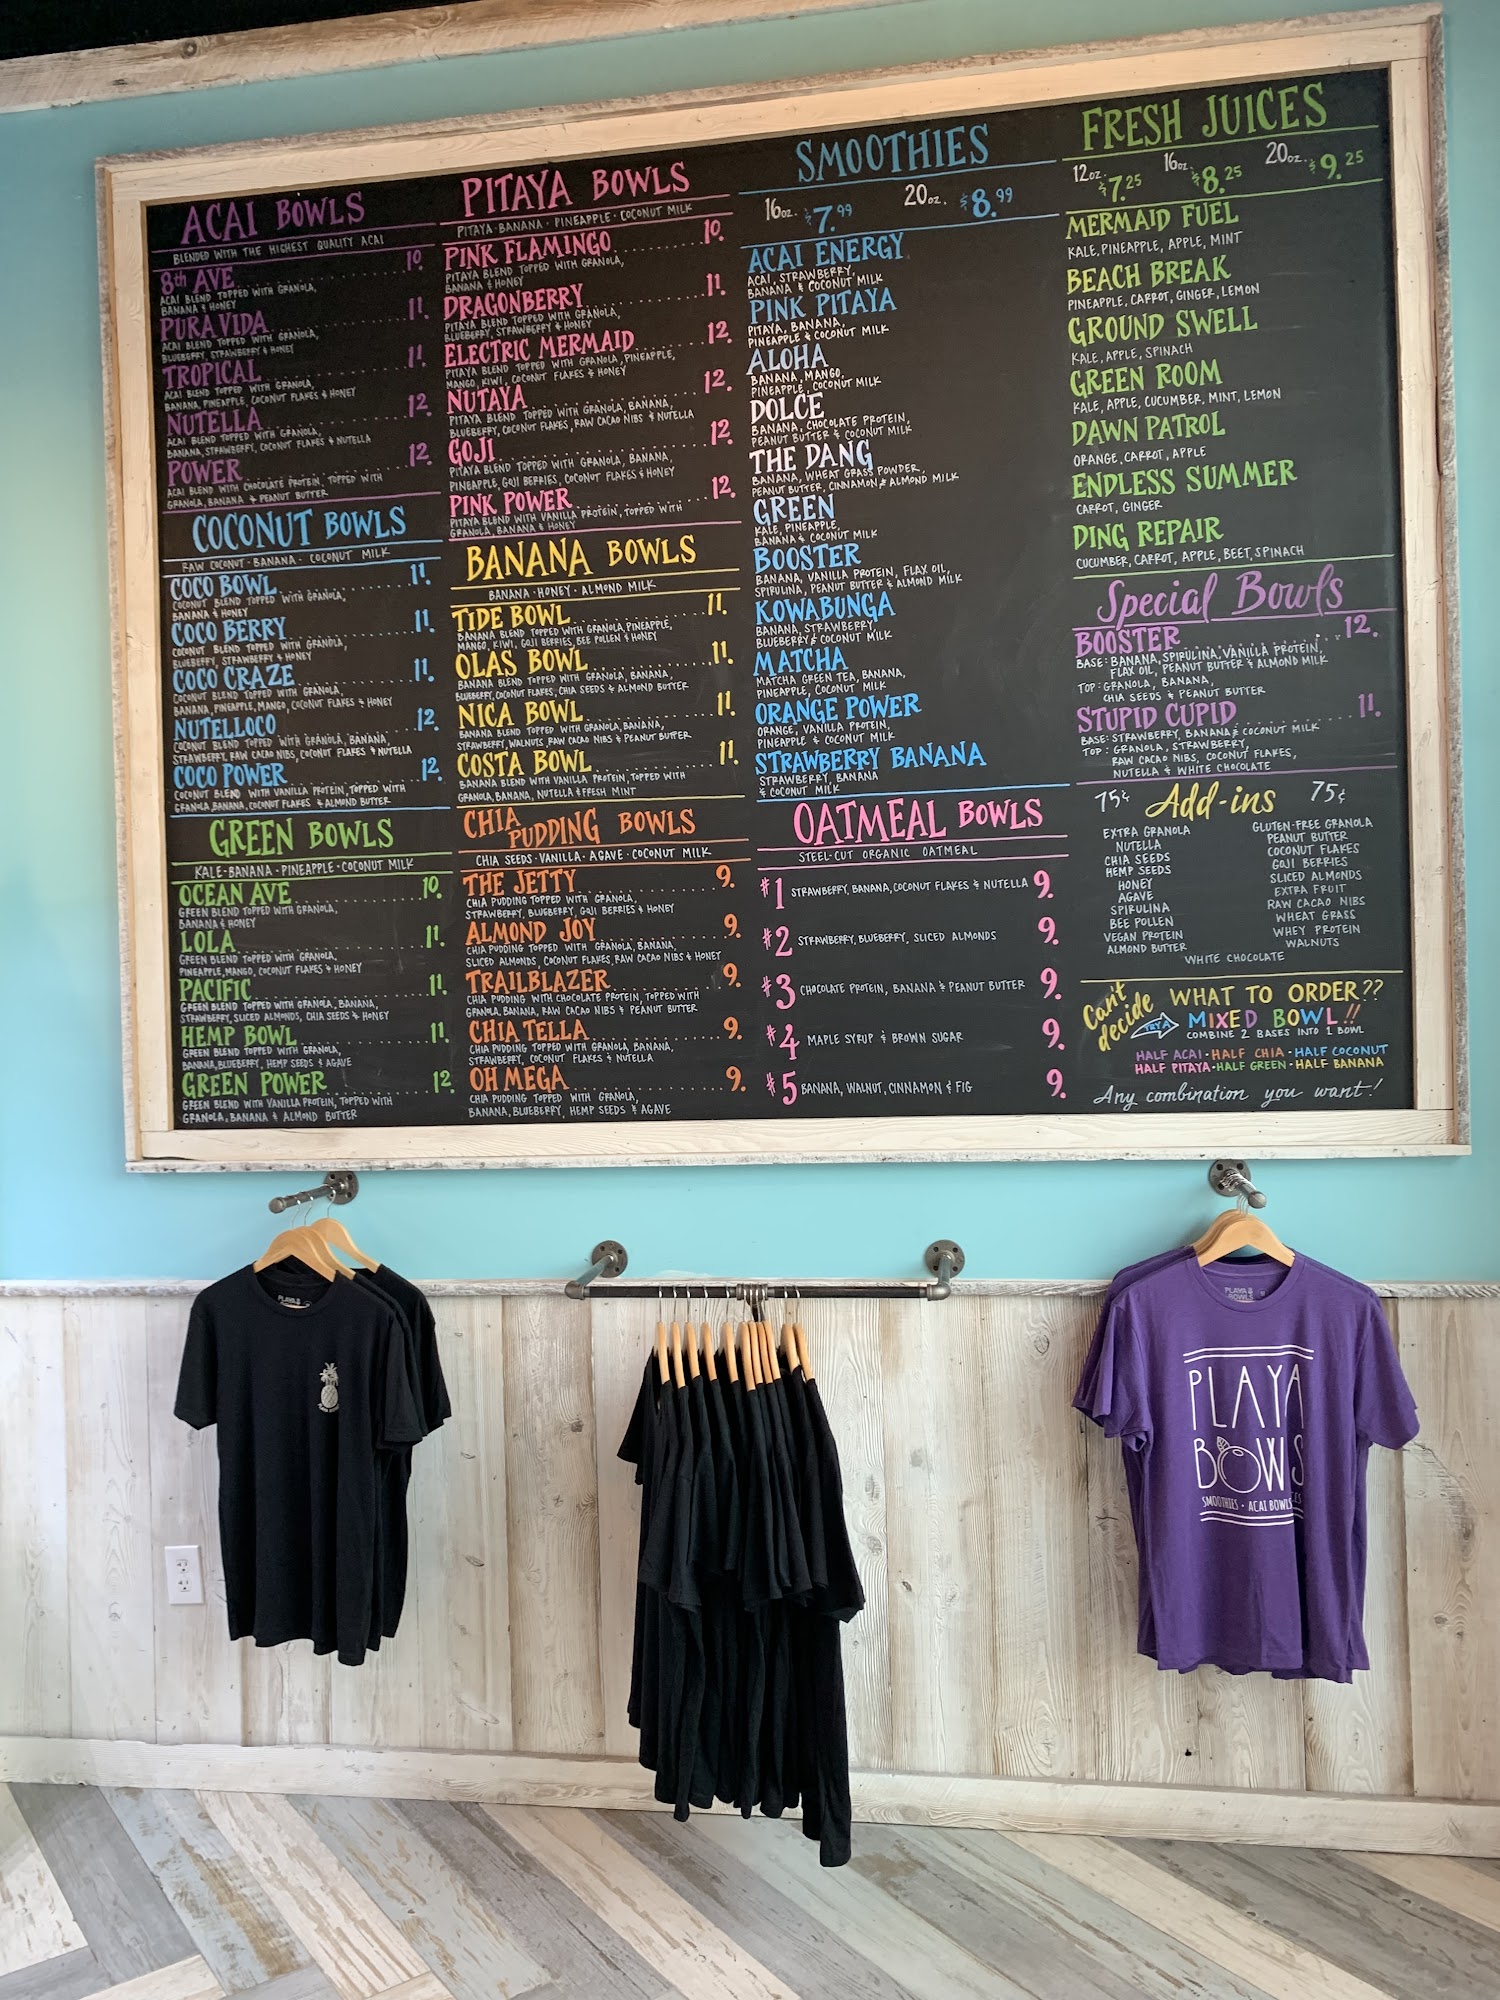 ACAI BOWLS
BLENDED WITH THE HIGHEST QUALITY ACAI
8th AVE 10.
ACAI BLEND TOPPED WITH GRANOLA,
BANANA & HONEY
PURA VIDA 11.
ACAI BLEND TOPPED WITH GRANOLA,
BLUEBERRY, STRAWBERRY & HONEY
TROPICAL 11.
ACAI BLEND TOPPED WITH GRANOLA,
BANANA, PINEAPPLE, COCONUT FLAKES & HONEY
NUTELLA 12.
ACAI BLEND TOPPED WITH GRANOLA,
BANANA, STRAWBERRY, COCONUT FLAKES & NUTELLA
POWER 12.
ACAI BLEND WITH CHOCOLATE PROTEIN, TOPPED WITH
GRANOLA, BANANA & PEANUT BUTTER
COCONUT BOWLS
RAW COCONUT · BANANA · COCONUT MILK
COCO BOWL 11.
COCONUT BLEND TOPPED WITH GRANOLA,
BANANA & HONEY
COCO BERRY 11.
COCONUT BLEND TOPPED WITH GRANOLA,
BLUEBERRY, STRAWBERRY & HONEY
COCO CRAZE 11.
COCONUT BLEND TOPPED WITH GRANOLA,
BANANA, PINEAPPLE, MANGO, COCONUT FLAKES & HONEY
NUTELLOCO 12.
COCONUT BLEND TOPPED WITH GRANOLA, BANANA,
STRAWBERRY, RAW CACAO NIBS, COCONUT FLAKES & NUTELLA
COCO POWER 12.
COCONUT BLEND WITH VANILLA PROTEIN, TOPPED WITH
GRANOLA, BANANA, COCONUT FLAKES & ALMOND BUTTER
GREEN BOWLS
KALE · BANANA · PINEAPPLE · COCONUT MILK
OCEAN AVE 10.
GREEN BLEND TOPPED WITH GRANOLA,
BANANA & HONEY
LOLA 11.
GREEN BLEND TOPPED WITH GRANOLA,
PINEAPPLE, MANGO, COCONUT FLAKES & HONEY
PACIFIC 11.
GREEN BLEND TOPPED WITH GRANOLA, BANANA,
STRAWBERRY, SLICED ALMONDS, CHIA SEEDS & HONEY
HEMP BOWL 11.
GREEN BLEND TOPPED WITH GRANOLA,
BANANA, BLUEBERRY, HEMP SEEDS & AGAVE
GREEN POWER 12.
GREEN BLEND WITH VANILLA PROTEIN, TOPPED WITH
GRANOLA, BANANA & ALMOND BUTTER
PITAYA BOWLS
PITAYA · BANANA · PINEAPPLE · COCONUT MILK
PINK FLAMINGO 10.
PITAYA BLEND TOPPED WITH GRANOLA,
BANANA & HONEY
DRAGONBERRY 11.
PITAYA BLEND TOPPED WITH GRANOLA,
BLUEBERRY, STRAWBERRY & HONEY
ELECTRIC MERMAID 12.
PITAYA BLEND TOPPED WITH GRANOLA, PINEAPPLE,
MANGO, KIWI, COCONUT FLAKES & HONEY
NUTAYA 12.
PITAYA BLEND TOPPED WITH GRANOLA, BANANA,
BLUEBERRY, COCONUT FLAKES, RAW CACAO NIBS & NUTELLA
GOJI 12.
PITAYA BLEND TOPPED WITH GRANOLA, BANANA,
PINEAPPLE, GOJI BERRIES, COCONUT FLAKES & HONEY
PINK POWER 12.
PITAYA BLEND WITH VANILLA PROTEIN, TOPPED WITH
GRANOLA, BANANA & HONEY
BANANA BOWLS
BANANA · HONEY · ALMOND MILK
TIDE BOWL 11.
BANANA BLEND TOPPED WITH GRANOLA, PINEAPPLE,
MANGO, KIWI, GOJI BERRIES, BEE POLLEN & HONEY
OLAS BOWL 11.
BANANA BLEND TOPPED WITH GRANOLA, BANANA,
BLUEBERRY, COCONUT FLAKES, CHIA SEEDS & ALMOND BUTTER
NICA BOWL 11.
BANANA BLEND TOPPED WITH GRANOLA, BANANA,
STRAWBERRY, WALNUTS, RAW CACAO NIBS & PEANUT BUTTER
COSTA BOWL 11.
BANANA BLEND WITH VANILLA PROTEIN, TOPPED WITH
GRANOLA, BANANA, NUTELLA & FRESH MINT
CHIA PUDDING BOWLS
CHIA SEEDS · VANILLA · AGAVE · COCONUT MILK
THE JETTY 9.
CHIA PUDDING TOPPED WITH GRANOLA,
STRAWBERRY, BLUEBERRY, GOJI BERRIES & HONEY
ALMOND JOY 9.
CHIA PUDDING TOPPED WITH GRANOLA, BANANA,
SLICED ALMONDS, COCONUT FLAKES, RAW CACAO NIBS & HONEY
TRAILBLAZER 9.
CHIA PUDDING WITH CHOCOLATE PROTEIN, TOPPED WITH
GRANOLA, BANANA, RAW CACAO NIBS & PEANUT BUTTER
CHIA TELLA 9.
CHIA PUDDING TOPPED WITH GRANOLA, BANANA,
STRAWBERRY, COCONUT FLAKES & NUTELLA
OH MEGA 9.
CHIA PUDDING TOPPED WITH GRANOLA,
BANANA, BLUEBERRY, HEMP SEEDS & AGAVE
SMOOTHIES
16oz. $7.99 20oz. $8.99
ACAI ENERGY
ACAI, STRAWBERRY,
BANANA & COCONUT MILK
PINK PITAYA
PITAYA, BANANA,
PINEAPPLE & COCONUT MILK
ALOHA
BANANA, MANGO,
PINEAPPLE, COCONUT MILK
DOLCE
BANANA, CHOCOLATE PROTEIN,
PEANUT BUTTER & COCONUT MILK
THE DANG
BANANA, WHEAT GRASS POWDER,
PEANUT BUTTER, CINNAMON & ALMOND MILK
GREEN
KALE, PINEAPPLE,
BANANA & COCONUT MILK
BOOSTER
BANANA, VANILLA PROTEIN, FLAX OIL,
SPIRULINA, PEANUT BUTTER & ALMOND MILK
KOWABUNGA
BANANA, STRAWBERRY,
BLUEBERRY & COCONUT MILK
MATCHA
MATCHA GREEN TEA, BANANA,
PINEAPPLE, COCONUT MILK
ORANGE POWER
ORANGE, VANILLA PROTEIN,
PINEAPPLE & COCONUT MILK
STRAWBERRY BANANA
STRAWBERRY, BANANA
& COCONUT MILK
OATMEAL BOWLS
STEEL-CUT ORGANIC OATMEAL
#1 STRAWBERRY, BANANA, COCONUT FLAKES & NUTELLA 9.
#2 STRAWBERRY, BLUEBERRY, SLICED ALMONDS 9.
#3 CHOCOLATE PROTEIN, BANANA & PEANUT BUTTER 9.
#4 MAPLE SYRUP & BROWN SUGAR 9.
#5 BANANA, WALNUT, CINNAMON & FIG 9.
FRESH JUICES
12oz. $7.25 16oz. $8.25 20oz. $9.25
MERMAID FUEL
KALE, PINEAPPLE, APPLE, MINT
BEACH BREAK
PINEAPPLE, CARROT, GINGER, LEMON
GROUND SWELL
KALE, APPLE, SPINACH
GREEN ROOM
KALE, APPLE, CUCUMBER, MINT, LEMON
DAWN PATROL
ORANGE, CARROT, APPLE
ENDLESS SUMMER
CARROT, GINGER
DING REPAIR
CUCUMBER, CARROT, APPLE, BEET, SPINACH
Special Bowls
BOOSTER 12.
BASE: BANANA, SPIRULINA, VANILLA PROTEIN,
FLAX OIL, PEANUT BUTTER & ALMOND MILK
TOP: GRANOLA, BANANA,
CHIA SEEDS & PEANUT BUTTER
STUPID CUPID 11.
BASE: STRAWBERRY, BANANA & COCONUT MILK
TOP: GRANOLA, STRAWBERRY,
RAW CACAO NIBS, COCONUT FLAKES,
NUTELLA & WHITE CHOCOLATE
75¢ Add-ins 75¢
EXTRA GRANOLA
NUTELLA
CHIA SEEDS
HEMP SEEDS
HONEY
AGAVE
SPIRULINA
BEE POLLEN
VEGAN PROTEIN
ALMOND BUTTER
GLUTEN-FREE GRANOLA
PEANUT BUTTER
COCONUT FLAKES
GOJI BERRIES
SLICED ALMONDS
EXTRA FRUIT
RAW CACAO NIBS
WHEAT GRASS
WHEY PROTEIN
WALNUTS
WHITE CHOCOLATE
Can't decide WHAT TO ORDER??
TRY A MIXED BOWL!!
COMBINE 2 BASES INTO 1 BOWL
HALF ACAI · HALF CHIA · HALF COCONUT
HALF PITAYA · HALF GREEN · HALF BANANA
Any combination you want!
PLAYA
BOWLS
PLAYA
BOWLS
SMOOTHIES · ACAI BOWLS